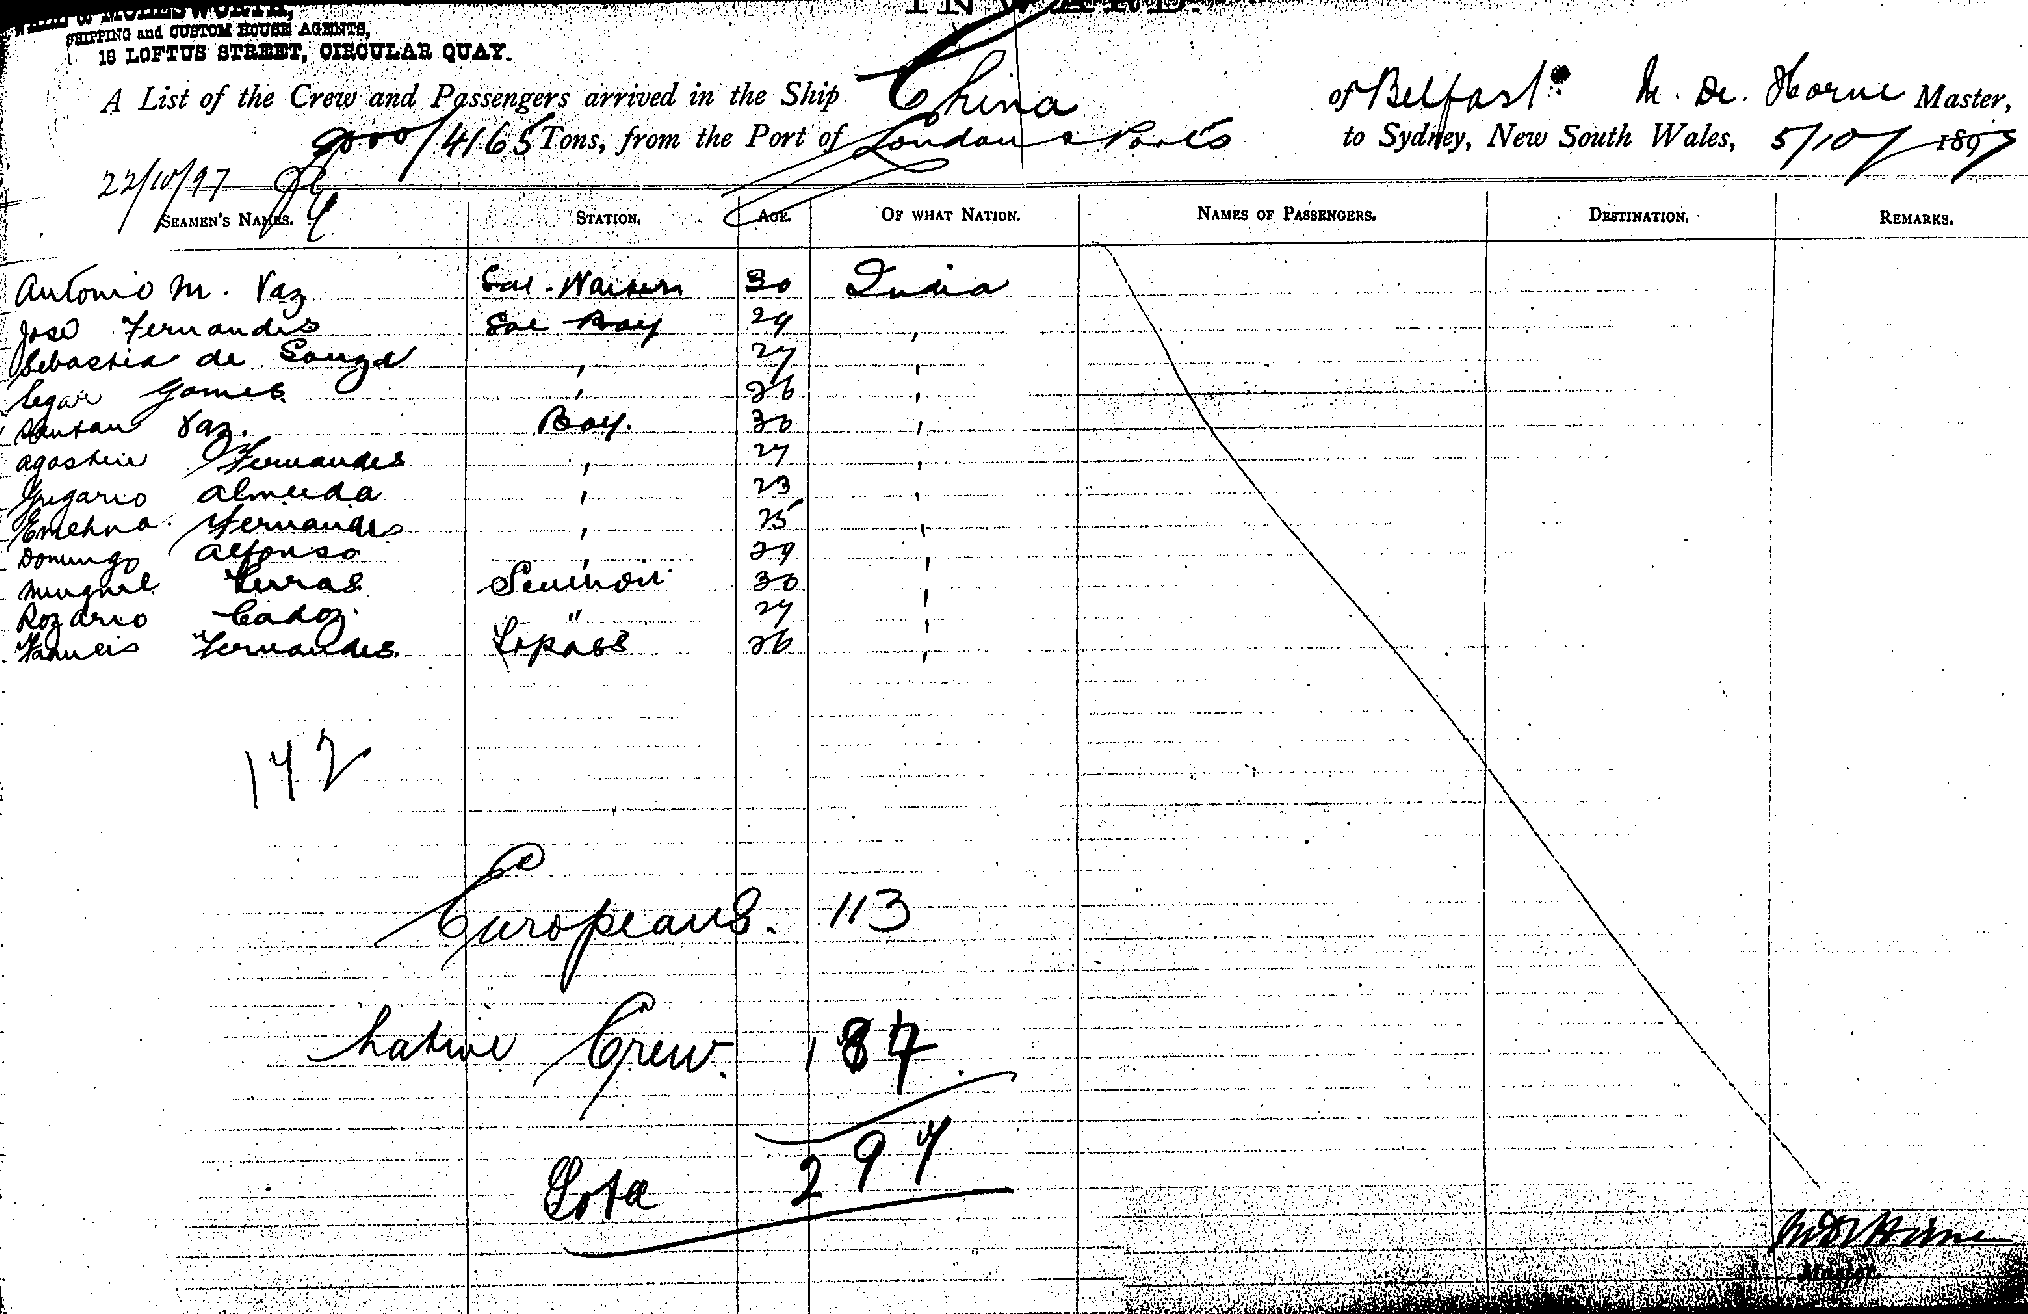 INWARD.
& MOLESWORTH,
SHIPPING and CUSTOM HOUSE AGENTS,
18 LOFTUS STREET, CIRCULAR QUAY.
A List of the Crew and Passengers arrived in the Ship China of Belfast M. De. Horne Master,
/4165 Tons, from the Port of London & Ports to Sydney, New South Wales, 5/10/ 1897
22/10/97
SEAMEN'S NAMES. STATION. AGE. OF WHAT NATION. NAMES OF PASSENGERS. DESTINATION. REMARKS.
Antonio M. Vaz Sal. 30 India
Jose Fernandes Sal Boy 29 "
Sebastia de Souza " 27 "
Gomes " 26 "
Vaz. Boy. 30 "
Agostini Fernandes " 27 "
Almeida " 23 "
Fernandes " 25 "
Domingo Alfonso " 29 "
30 "
Rozario " 27 "
Francis Fernandes 26 "
142
Europeans. 113
Native Crew. 184
Tota 297
Master